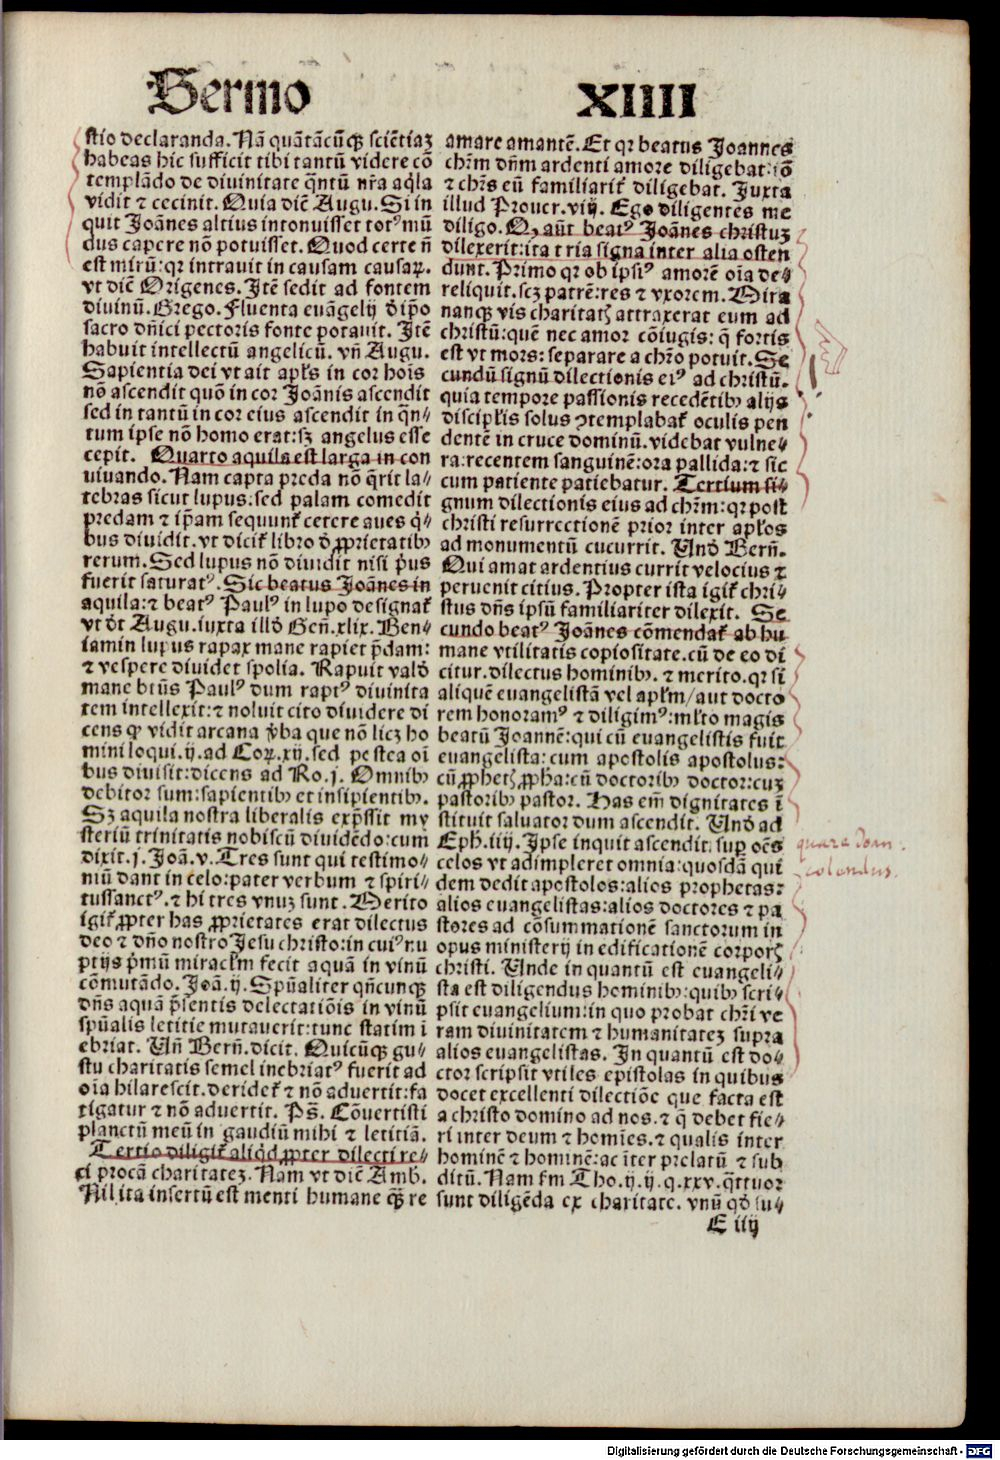 Sermo XIIII
stio declaranda. Nã quãtãcũqꝫ sciẽtiaꝫ
habeas hic sufficit tibi tantũ videre cõ
templãdo de diuinitate q̃ntũ nr̃a aq̇la
vidit ⁊ cecinit. Quia diẽ Augu. Si in
quit Joãnes altius intonuisset totꝰ mũ
dus capere nõ potuisset. Quod certe ñ
est mirũ: qꝛ intrauit in causam causaꝝ.
vt diẽ Origenes. Itẽ sedit ad fontem
diuinũ. Grego. Fluenta euãgelij d̕ ip̃o
sacro dñici pectoris fonte potauit. Itẽ
habuit intellectũ angelicũ. vñ Augu.
Sapientia dei vt ait apl̃s in cor hoĩs
nõ ascendit quõ in cor Joãnis ascendit
sed in tantũ in cor eius ascendit in q̃n⸗
tum ipse nõ homo erat: sꝫ angelus esse
cepit. Quarto aquila est larga in con
uiuando. Nam capta preda nõ q̃rit la⸗
tebras sicut lupus: sed palam comedit
predam ⁊ ip̃am sequunt̃ cetere aues q̇⸗
bus diuidit. vt dicit̃ libro d̕ ꝓprietatibꝰ
rerum. Sed lupus nõ diuidit nisi p̃us
fuerit saturatꝰ. Sic beatus Joãnes in
aquila: ⁊ beatꝰ Paulꝰ in lupo designat̃
vt d̕t Augu. iuxta illd̕ Geñ. xlix. Ben⸗
iamin lupus rapax mane rapiet p̃dam:
⁊ vespere diuidet spolia. Rapuit vald̕
mane btũs Paulꝰ dum raptꝰ diuinita
tem intellexit: ⁊ noluit cito diuidere di
cens ꝙ vidit arcana v̕ba que nõ licꝫ ho
mini loqui. ij. ad Coꝝ. xij. sed postea oĩ
bus diuisit: dicens ad Ro. j. Omnibꝰ
debitor sum: sapientibꝰ et insipientibꝰ.
Sꝫ aquila nostra liberalis exp̃ssit my
steriũ trinitatis nobiscũ diuidẽdo: cum
dixit. j. Joã. v. Tres sunt qui testimo⸗
niũ dant in celo: pater verbum ⁊ spiri⸗
tussanctꝰ. ⁊ hi tres vnuꝫ sunt. Merito
igit̃ ꝓpter has ꝓprietates erat dilectus
deo ⁊ dño nostro Jesu christo: in cuiꝰ nu
ptijs p̃mũ miracl̃m fecit aquã in vinũ
cõmutãdo. Joã. ij. Spũaliter qñcunqꝫ
dñs aquã p̃sentis delectatiõis in vinũ
spũalis letitie mutauerit: tunc statim ĩ
ebriat. Vñ Berñ. dicit. Quicũqꝫ gu⸗
stu charitatis semel inebriatꝰ fuerit ad
oĩa hilarescit. deridet̃ ⁊ nõ aduertit: fa
tigatur ⁊ nõ aduertit. Ps̃. Cõuertisti
planctũ meũ in gaudiũ mihi ⁊ letitiã.
Tertio diligit̃ aliq̇d ꝓpter dilecti re⸗
ci procã charitateꝫ. Nam vt diẽ Amb.
Nil ita insertũ est menti humane qꝫ̃ re
amare amantẽ. Et qꝛ beatus Joannes
chr̃m dñm ardenti amore diligebat: iõ
⁊ chr̃s eũ familiarit̃ diligebat. Juxta
illud Prouer. viij. Ego diligentes me
diligo. Qꝙ aũt beatꝰ Joãnes christuꝫ
dilexerit: ita tria signa inter alia osten
dunt. Primo qꝛ ob ipsiꝰ amorẽ oĩa de⸗
reliquit. scꝫ patrẽ: res ⁊ vxorem. Mira
nanqꝫ vis charitatꝭ attraxerat eum ad
christũ: quẽ nec amor cõiugis: q̃ fortis
est vt mors: separare a chr̃o potuit. Se
cundũ signũ dilectionis eiꝰ ad christũ.
quia tempore passionis recedẽtibꝰ alijs
discipl̃is solus ꝯtemplabat̃ oculis pen
dentẽ in cruce dominũ. videbat vulne⸗
ra: recentem sanguinẽ: ora pallida: ⁊ sic
cum patiente patiebatur. Tertium si⸗
gnum dilectionis eius ad chr̃m: qꝛ post
christi resurrectionẽ prior inter apl̃os
ad monumentũ cucurrit. Vnd̕ Berñ.
Qui amat ardentius currit velocius ⁊
peruenit citius. Propter ista igit̃ chri⸗
stus dñs ipsũ familiariter dilexit. Se
cundo beatꝰ Joãnes cõmendat̃ ab hu
mane vtilitatis copiositate. cũ de eo di
citur. dilectus hominibꝰ. ⁊ merito. qꝛ si
aliquẽ euangelistã vel apl̃m/aut docto
rem honoramꝰ ⁊ diligimꝰ: ml̃to magis
beatũ Joannẽ: qui cũ euangelistis fuit
euangelista: cum apostolis apostolus:
cũ ꝓphetꝭ ꝓph̃a: cũ doctoribꝰ doctor: cuꝫ
pastoribꝰ pastor. Has em̃ dignitates ĩ
stituit saluator dum ascendit. Vnd̕ ad
Eph. iiij. Ipse inquit ascendit sup̱ oẽs
celos vt adimpleret omnia: quosdã qui
dem dedit apostolos: alios prophetas:
alios euangelistas: alios doctores ⁊ pa
stores ad cõsummationẽ sanctorum in
opus ministerij in edificationẽ corporꝭ
christi. Vnde in quantũ est euangeli⸗
sta est diligendus hominibꝰ: quibꝰ scri⸗
psit euangelium: in quo probat chr̃i ve
ram diuinitatem ⁊ humanitateꝫ supra
alios euangelistas. In quantũ est do⸗
ctor scripsit vtiles epistolas in quibus
docet excellenti dilectiõe que facta est
a christo domino ad nos. ⁊ q̃ debet fie⸗
ri inter deum ⁊ homĩes. ⁊ qualis inter
hominẽ ⁊ hominẽ: ac ĩter prelatũ ⁊ sub
ditũ. Nam ẜm Tho. ij. ij. q. xxv. q̃ttuor
sunt diligẽda ex charitate. vnũ qd̕ su⸗
E iij
quare Joan.
colendus.
Digitalisierung gefördert durch die Deutsche Forschungsgemeinschaft - DFG